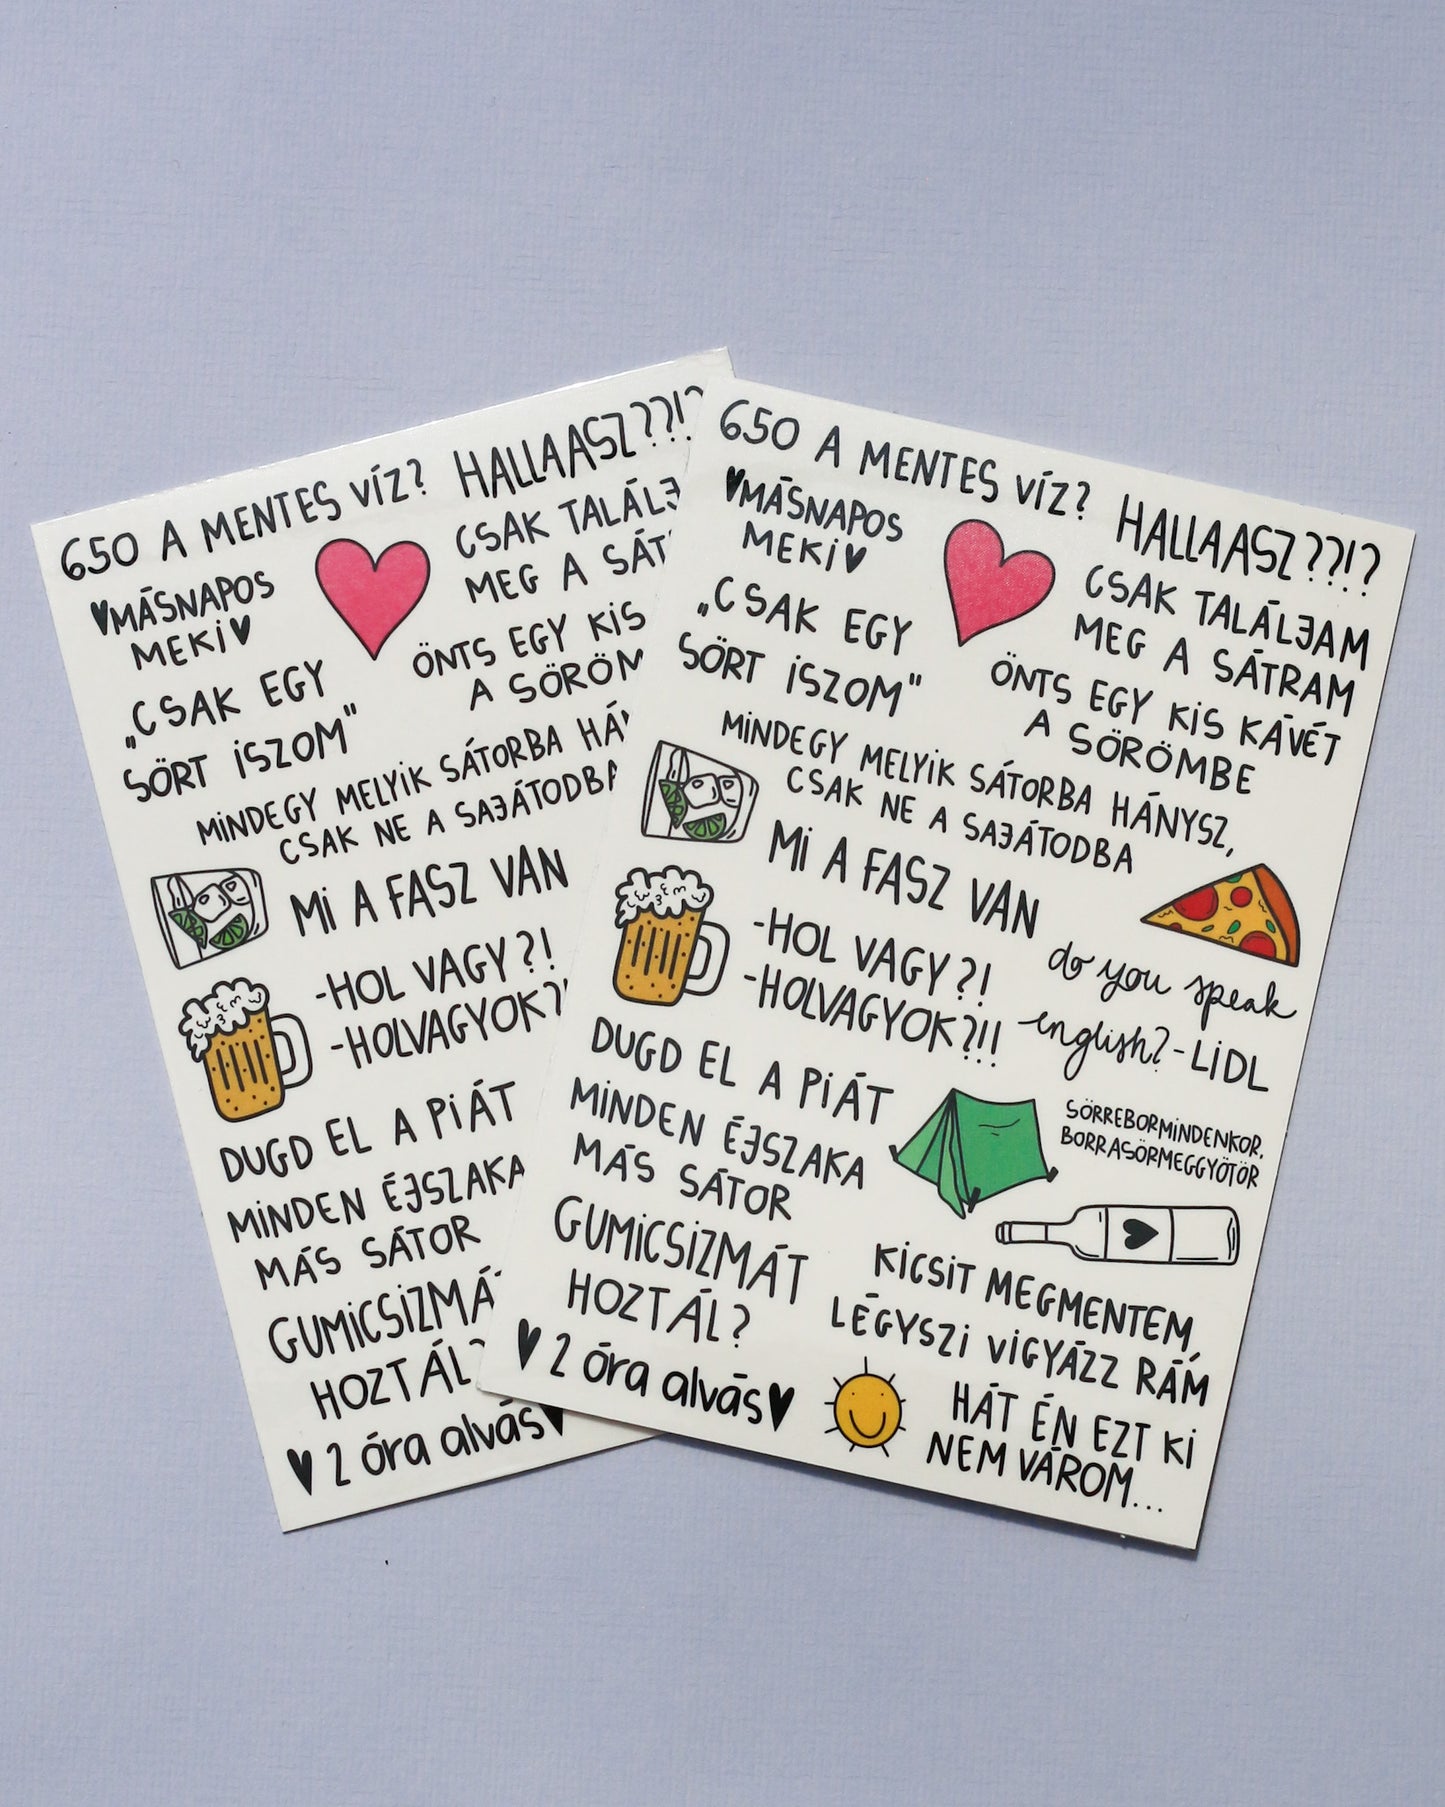 650 A MENTES VÍZ?
HALLAASZ??!?
MÁSNAPOS
MEKI
CSAK TALÁLJ
MEG A SÁT
„CSAK EGY
SÖRT ISZOM"
ÖNTS EGY KIS
A SÖRÖM
MINDEGY MELYIK SÁTORBA HÁ
CSAK NE A SAJÁTODBA
MI A FASZ VAN
-HOL VAGY?!
-HOLVAGYOK?!
DUGD EL A PIÁT
MINDEN ÉJSZAKA
MÁS SÁTOR
GUMICSIZMÁ
HOZTÁL?
2 óra alvás
650 A MENTES VÍZ?
HALLAASZ??!?
MÁSNAPOS
MEKI
CSAK TALÁLJAM
MEG A SÁTRAM
„CSAK EGY
SÖRT ISZOM"
ÖNTS EGY KIS KÁVÉT
A SÖRÖMBE
MINDEGY MELYIK SÁTORBA HÁNYSZ,
CSAK NE A SAJÁTODBA
MI A FASZ VAN
-HOL VAGY?!
-HOLVAGYOK?!!
do you speak
english? - LIDL
DUGD EL A PIÁT
MINDEN ÉJSZAKA
MÁS SÁTOR
SÖRREBORMINDENKOR,
BORRASÖRMEGGYÖTÖR
GUMICSIZMÁT
HOZTÁL?
KICSIT MEGMENTEM,
LÉGYSZI VIGYÁZZ RÁM
2 óra alvás
HÁT ÉN EZT KI
NEM VÁROM...